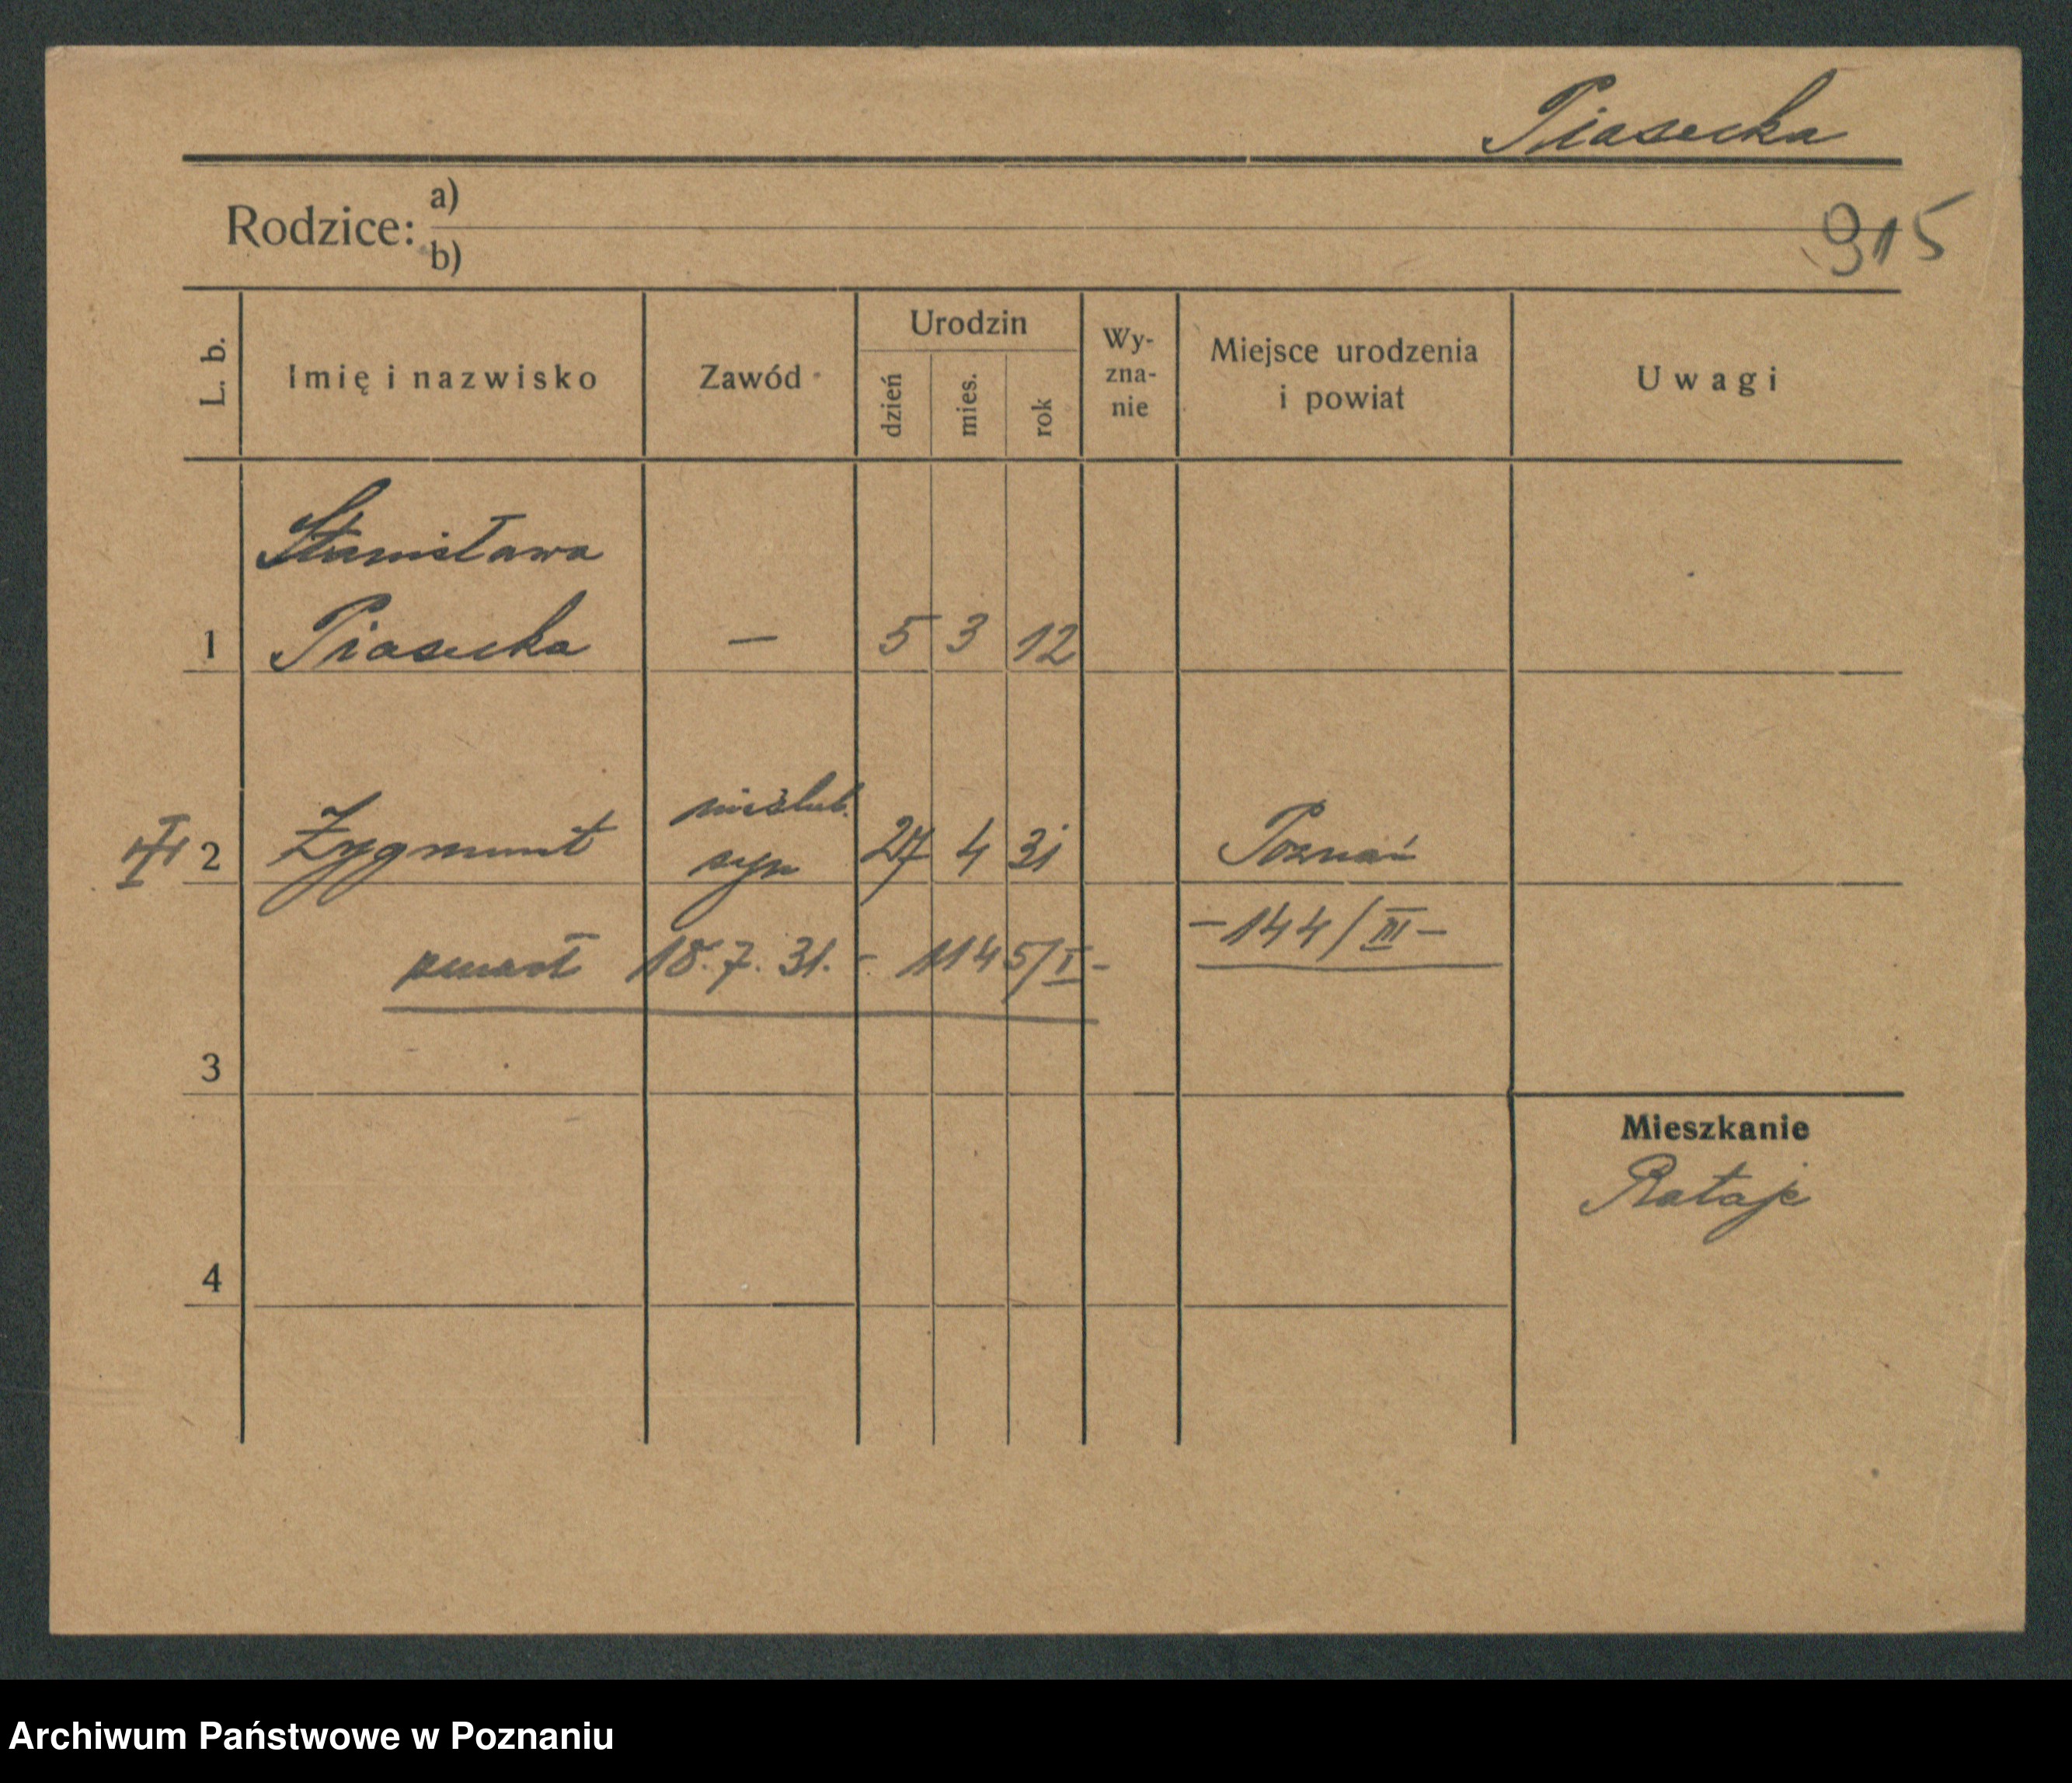 Piasecka
Rodzice: a)
b)
915
L. b. Imię i nazwisko Zawód Urodzin dzień mies. rok Wy-zna-nie Miejsce urodzenia i powiat Uwagi
Stanisława
1 Piasecka — 5 3 12
nieślub.
2 Zygmunt syn 27 4 31 Poznań
-144/III-
zmarł 18.7.31. - 1145/I-
3
Mieszkanie
Rataje
4
Archiwum Państwowe w Poznaniu